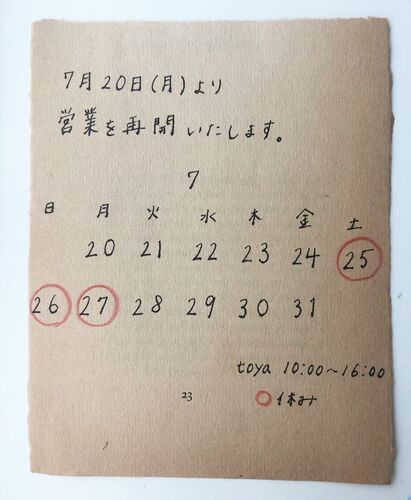 7月20日(月)より
営業を再開いたします。
7
日 月 火 水 木 金 土
20 21 22 23 24 25
26 27 28 29 30 31
toya 10:00~16:00
23 ○休み